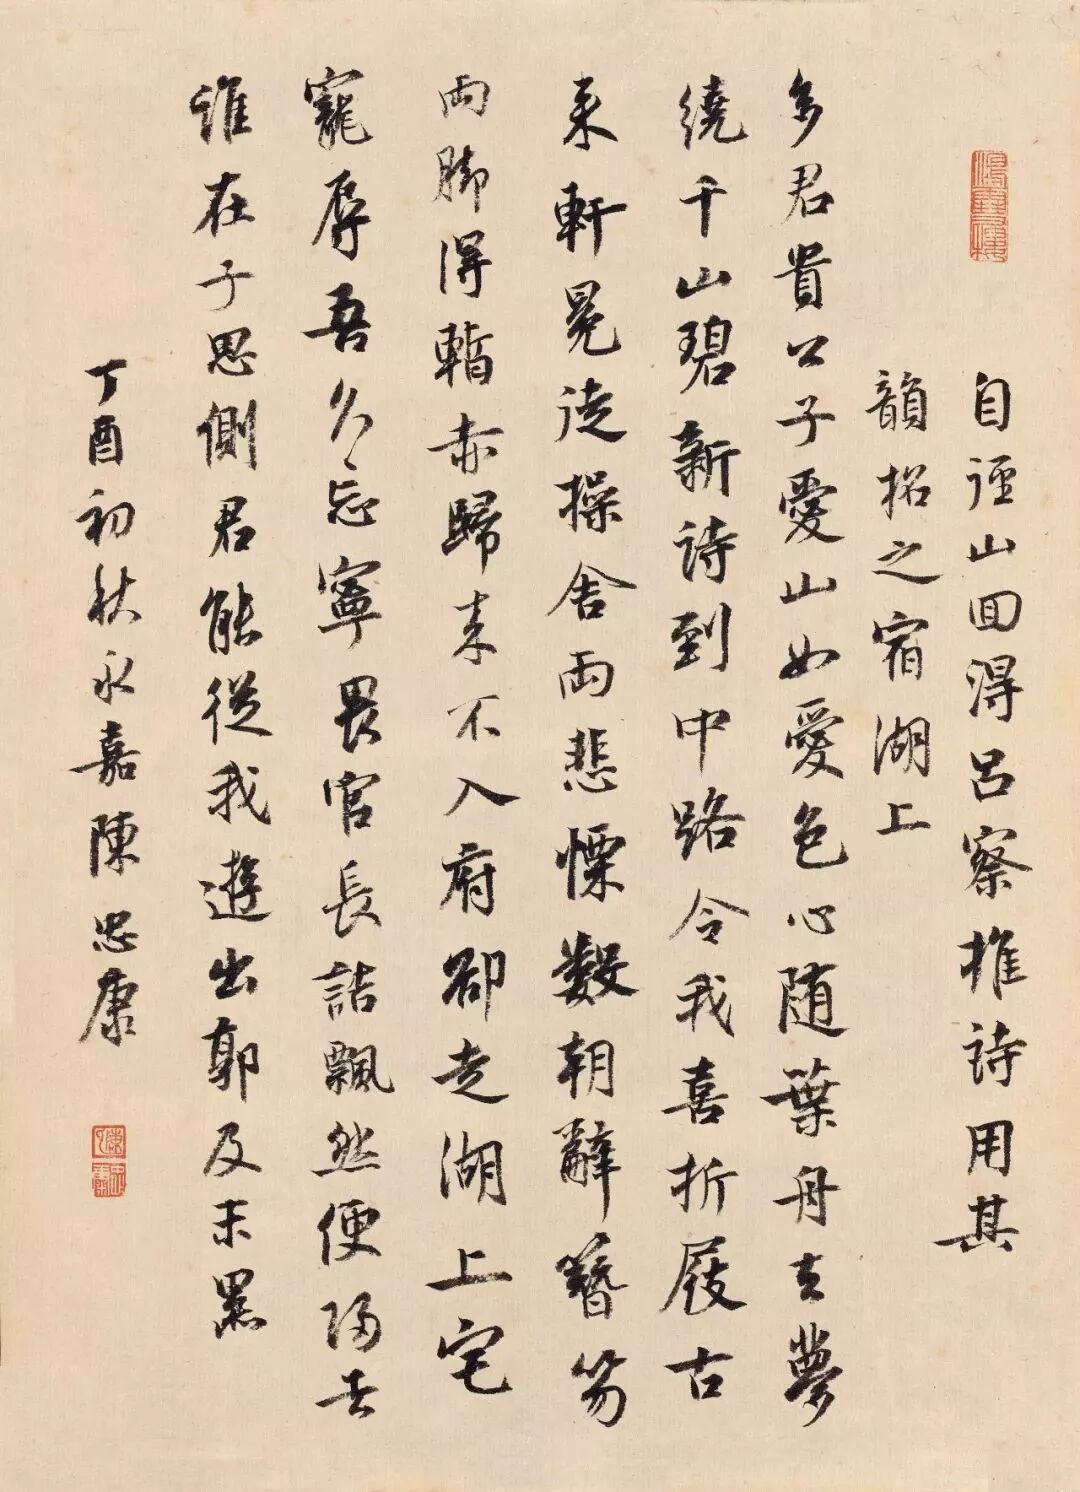 自徑山回得呂察推詩用其
韻招之宿湖上
多君貴公子愛山如愛色心随葉舟去夢
繞千山碧新詩到中路令我喜折屐古
来軒冕徒操舍兩悲慄數朝辭簪笏
兩脚得暫赤歸来不入府卻走湖上宅
寵辱吾久忘寧畏官長詰飄然便歸去
誰在子思側君能從我遊出郭及未黑
丁酉初秋永嘉陳忠康